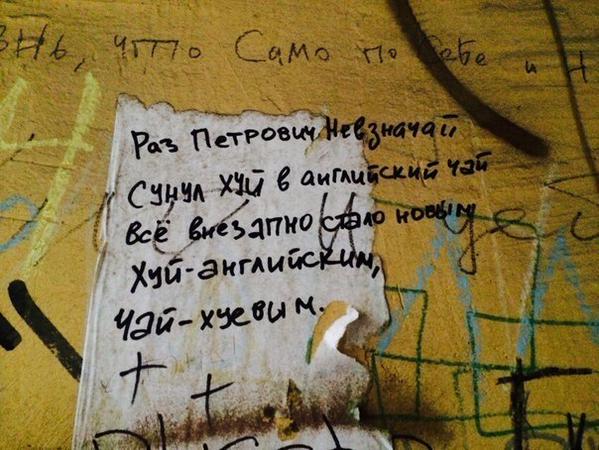 знь, что Само по Себе и н
Раз Петрович Невзначай
Сунул ХУЙ в английский чай
Всё внезапно стало новым
Хуй-английским,
Чай-хуевым.